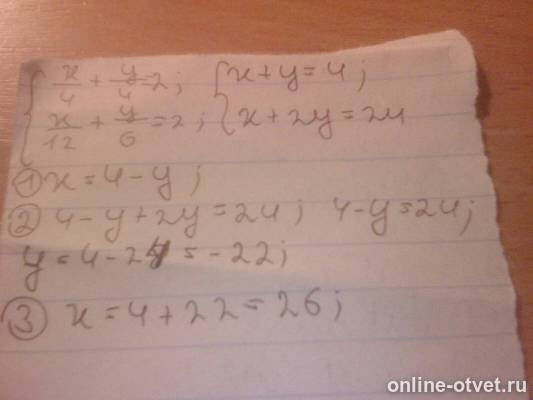 { x/4 + y/4 = 2; { x + y = 4;
x/12 + y/6 = 2; x + 2y = 24
① x = 4 - y;
② 4 - y + 2y = 24; 4 - y = 24;
y = 4 - 24 = -22;
③ x = 4 + 22 = 26;
online-otvet.ru